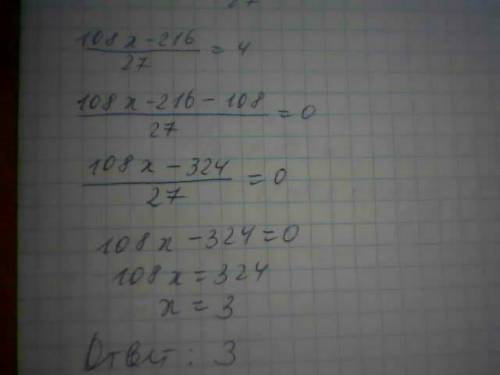 27
(108x-216)/27 = 4
(108x-216-108)/27 = 0
(108x-324)/27 = 0
108x-324=0
108x=324
x=3
Ответ: 3